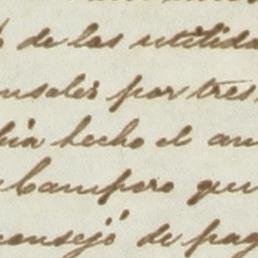 de las utilida
nsales por tres
bia hecho el an
Campero que
consejó de pag